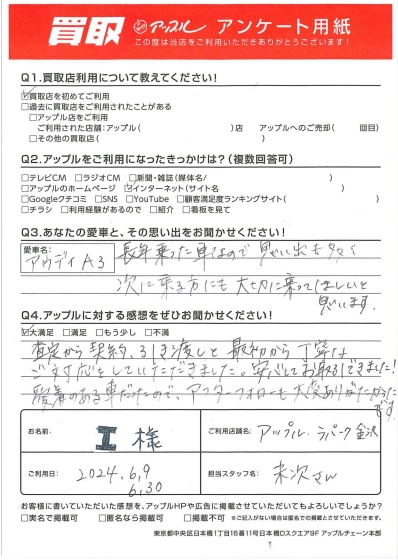 買取 アップル アンケート用紙
この度は当店をご利用いただきありがとうございます!
Q1.買取店利用について教えてください!
☑買取店を初めてご利用
□過去に買取店をご利用されたことがある
□アップル店をご利用
ご利用された店舗:アップル( )店 アップルへのご売却( 回目)
□その他の買取店( )
Q2.アップルをご利用になったきっかけは?(複数回答可)
□テレビCM □ラジオCM □新聞・雑誌(媒体名/ )
□アップルのホームページ ☑インターネット(サイト名 )
□Googleクチコミ □SNS □YouTube □顧客満足度ランキングサイト( )
□チラシ □利用経験があるので □紹介 □看板を見て
Q3.あなたの愛車と、その思い出をお聞かせください!
愛車名:
アウディA3
長年乗った車なので思い出も多々
次に乗る方にも大切に乗ってほしいと
思います。
Q4.アップルに対する感想をぜひお聞かせください!
☑大満足 □満足 □もう少し □不満
査定から契約、引き渡しと最初から丁寧な
ご対応をしていただきました。安心してお取引できました!
愛着のある車だったので、アフターフォローも大変ありがたかった
です。
お名前: 工様
ご利用店舗名: アップル ラパーク金沢
ご利用日: 2024.6,9
6,30
担当スタッフ名: 末次さん
お客様に書いていただいた感想を、アップルHPや広告に掲載させていただいてもよろしいでしょうか?
□実名で掲載可 □匿名なら掲載可 □掲載不可 ※ご記入がない場合は匿名での掲載とさせていただきます。
東京都中央区日本橋1丁目16番11号日本橋Dスクエア9F アップルチェーン本部